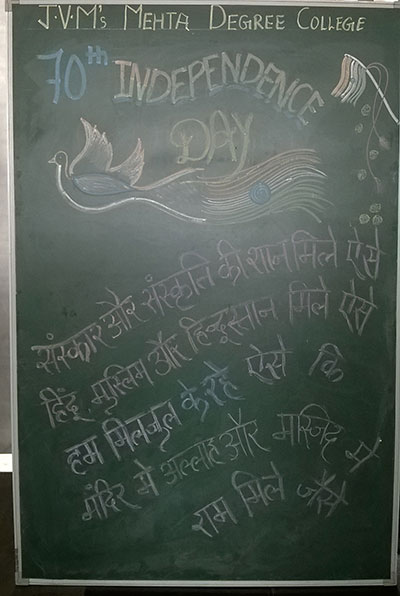 J.V.M's MEHTA DEGREE COLLEGE
70th INDEPENDENCE
DAY
संस्कार और संस्कृति की शान मिले ऐसे
हिंदू मुस्लिम और हिन्दुस्तान मिले ऐसे
हम मिलजुल के रहे ऐसे कि
मंदिर मे अल्लाह और मस्जिद मे
राम मिले जैसे